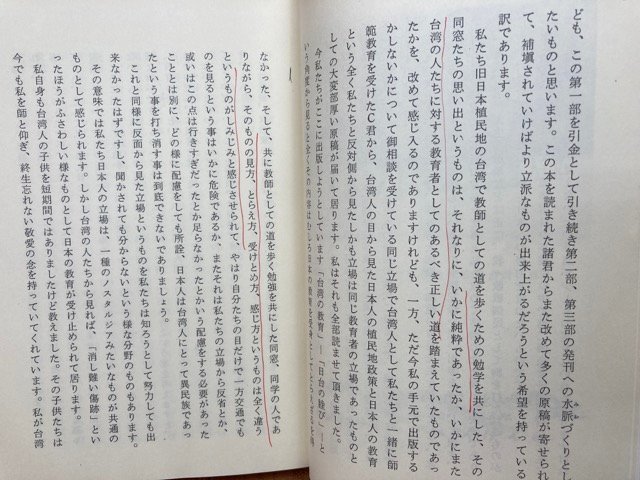 ども、この第一部を引金として引き続き第二部、第三部の発刊への水脈づくりとし
みお
たいものと思います。この本を読まれた諸君からまた改めて多くの原稿が寄せられ
て、補塡されていけばより立派なものが出来上がるだろうという希望を持っている
訳であります。
私たち旧日本植民地の台湾で教師としての道を歩くための勉学を共にした、その
同窓たちの思い出というものは、それなりに、いかに純粋であったか、いかにまた
台湾の人たちに対する教育者としてのあるべき正しい道を踏まえていたものであっ
たかを、改めて感じ入るのでありますけれども、一方、ただ今私の手元で出版する
かしないかについて御相談を受けている同じ立場で台湾人として私たちと一緒に師
範教育を受けたC君から、台湾人の目から見た日本人の植民地政策と日本人の教育
という全く私たちと反対側から見たしかも立場は同じ教育者の立場であったものと
しての大変部厚い原稿が届いて居ります。私はそれも全部読ませて頂きました。
今私たちがここに出版しようとしています「台湾の教育」―「日台の結び」―と
なかった、そして、共に教師としての道を歩く勉強を共にした同窓、同学の人であ
りながら、そのものの見方、とらえ方、受けとめ方、感じ方というものは全く違う
というものがしみじみと感じさせられて、やはり自分たちの目だけで一方交通でも
のを見るという事はいかに危険であるか、またそれは私たちの立場から反省とか、
或いはこの点は行きすぎだったとか足らなかったとかいう配慮をする必要があった
こととは別に、どの様に配慮をしても所詮、日本人は台湾人にとって異民族であっ
たという事を打ち消す事は到底できないでありましょう。
これと同様に反面から見た立場というものを私たちは知ろうとして努力しても出
来なかったはずですし、聞かされても分からないという様な分野のものもあります。
その意味では私たち日本人の立場は、一種のノスタルジアみたいなものが共通の
ものとして感じられます。しかし台湾の人たちから見れば、「消し難い傷跡」とい
ったほうがふさわしい様なものとして日本の教育が受け止められて居ります。
私自身も台湾人の子供を短期間ではありましたけど教えました。その子供たちは
今でも私を師と仰ぎ、終生忘れない敬愛の念を持っていてくれています。私が台湾